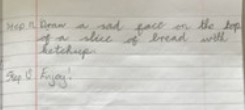 Step 7: Draw a sad face on the top
of a slice of bread with
ketchup.
Step 8: Enjoy!